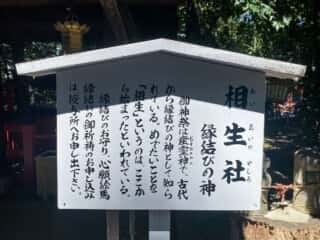 相生社
あい おい しゃ
縁結びの神
御神祭は産霊神で、古代
から縁結びの神として知ら
れている。めでたいことを
「相生」というのは、ここか
ら始まったといわれている。
縁結びのお守り、心願絵馬
縁結びの御祈祷のお申し込み
は授与所へお申し出下さい。